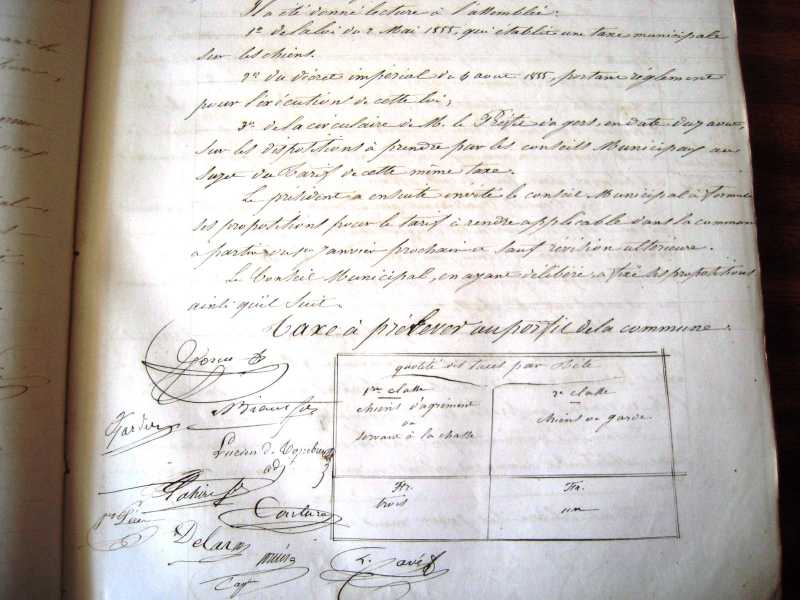 Il a été donné lecture à l'assemblée:
1° de la loi du 2 Mai 1855, qui établit une taxe municipale
sur les chiens.
2° du décret impérial du 4 aout 1855, portant réglement
pour l'exécutions de cette loi;
3° de la circulaire de M. le Préfet du gers, en date du 7 aout,
sur les dispositions à prendre par les conseils Municipaux au
sujet du Tarif de cette même taxe.
Le président a ensuite invité le conseil Municipal à formuler
ses propositions pour le tarif à rendre applicable dans la commune
à partir du 1er Janvier prochain sauf révision ultérieure.
Le Conseil Municipal, en ayant délibéré, a fixé ses propositions
ainsi qu'il suit.
Taxe à prélever au profit de la commune.
quotité des taxes par Tête
1re classe
chiens d'agrément
ou
servant à la chasse
2e classe
chiens de garde.
Fr.
trois
Fr.
un
Lucien de
adjt
Lahire
Couture
Delara